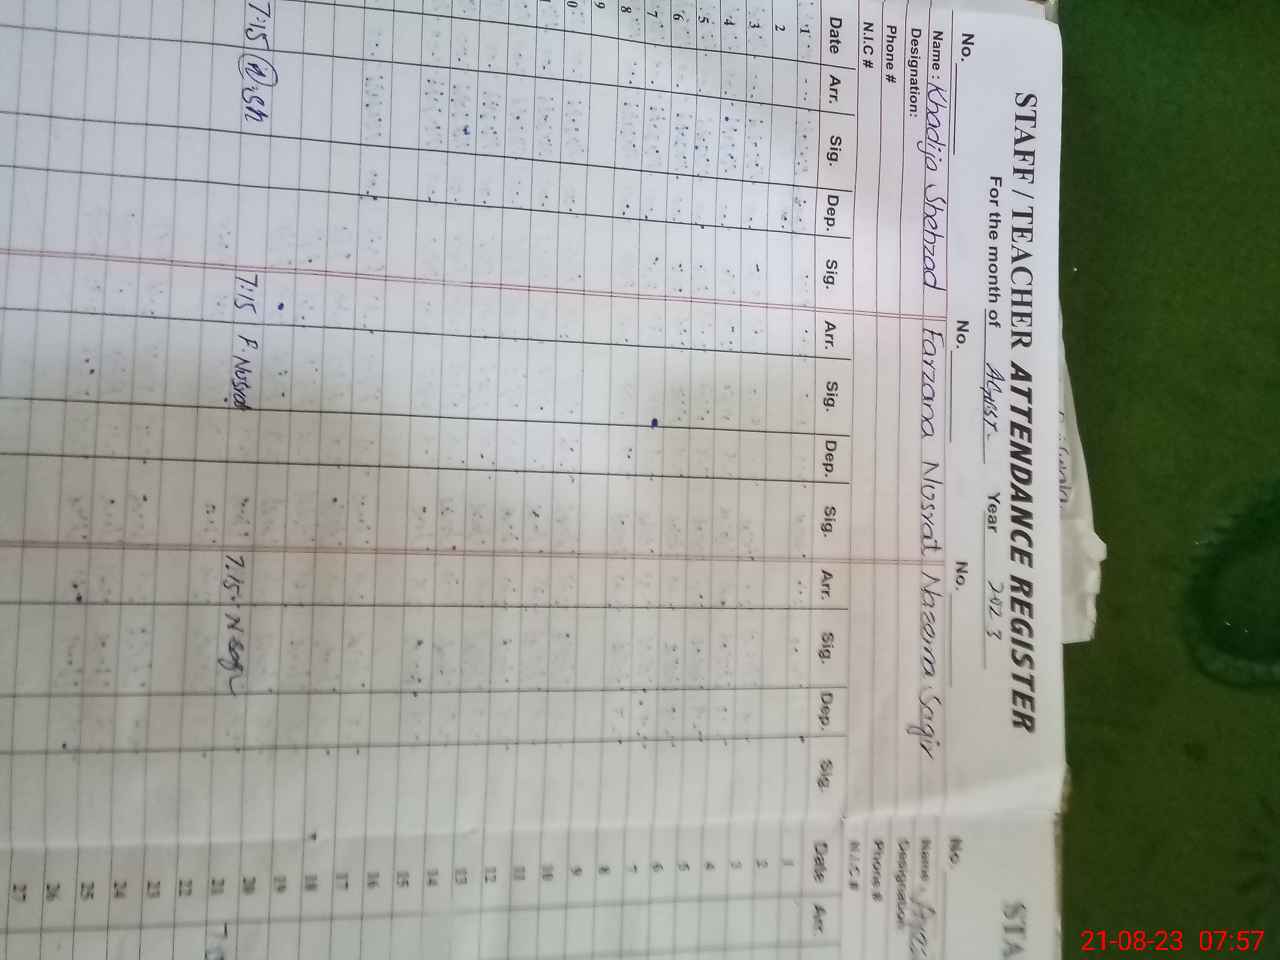 STAFF / TEACHER ATTENDANCE REGISTER
For the month of August Year 2023
No. No. No.
Name: Khadija Shehzad Farzana Nusrat Nazema Sagir
Designation:
Phone #
N.I.C #
Date Arr. Sig. Dep. Sig. Arr. Sig. Dep. Sig. Arr. Sig. Dep. Sig.
1
2
3
4
5
6
7
8
9
0
7:15 7:15 F. Nusrat 7.15
STA
No.
Name:
Designation:
Phone #
N.I.C #
Date Arr.
1
2
3
4
5
6
7
8
9
10
11
12
13
14
15
16
17
18
19
20
21 7
22
23
24
25
26
27
21-08-23 07:57